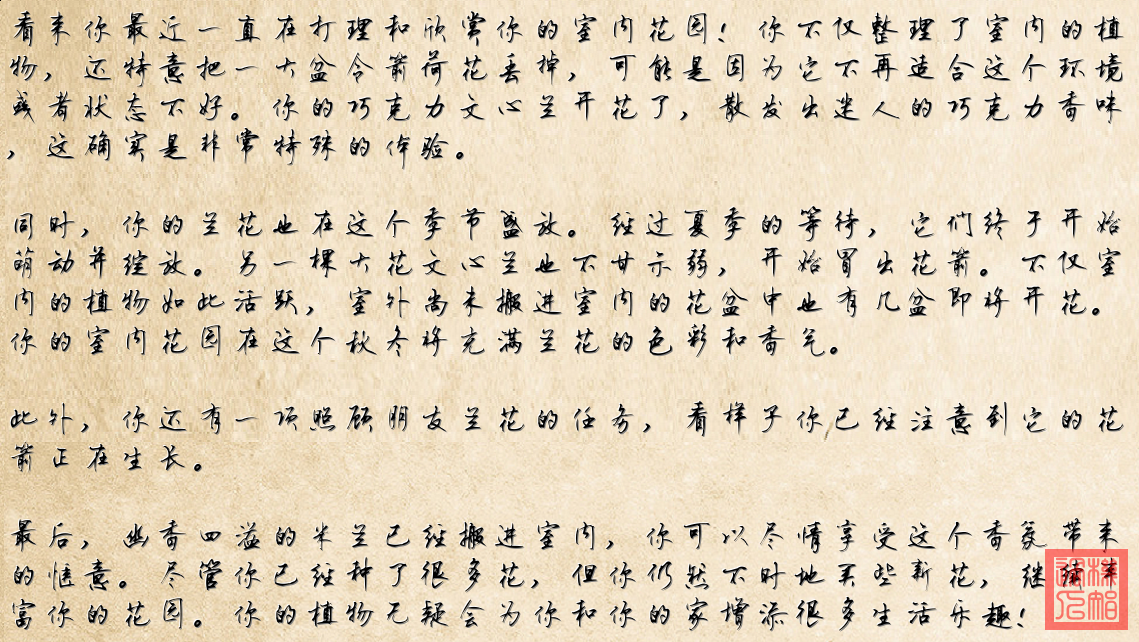 看来你最近一直在打理和欣赏你的室内花园！你不仅整理了室内的植
物，还特意把一大盆令箭荷花丢掉，可能是因为它不再适合这个环境
或者状态不好。你的巧克力文心兰开花了，散发出迷人的巧克力香味
，这确实是非常特殊的体验。
同时，你的兰花也在这个季节盛放。经过夏季的等待，它们终于开始
萌动并绽放。另一棵大花文心兰也不甘示弱，开始冒出花箭。不仅室
内的植物如此活跃，室外尚未搬进室内的花盆中也有几盆即将开花。
你的室内花园在这个秋冬将充满兰花的色彩和香气。
此外，你还有一项照顾朋友兰花的任务，看样子你已经注意到它的花
箭正在生长。
最后，幽香四溢的米兰已经搬进室内，你可以尽情享受这个香氛带来
的惬意。尽管你已经种了很多花，但你仍然不时地买些新花，继续丰
富你的花园。你的植物无疑会为你和你的家增添很多生活乐趣！